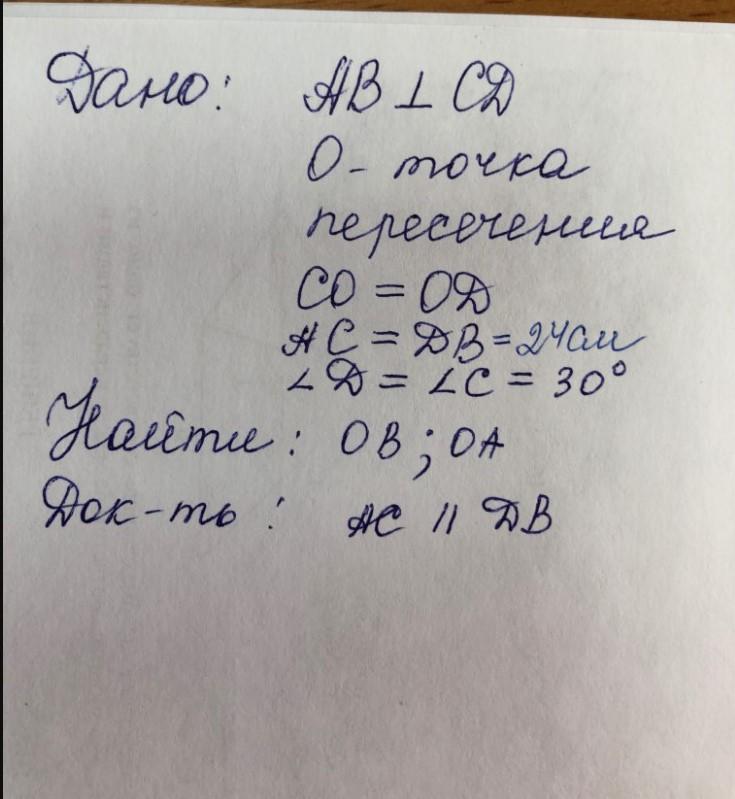 Дано: AB ⊥ CD
O - точка
пересечения
CO = OD
AC = DB = 24см
∠D = ∠C = 30°
Найти: OB; OA
Док-ть: AC || DB